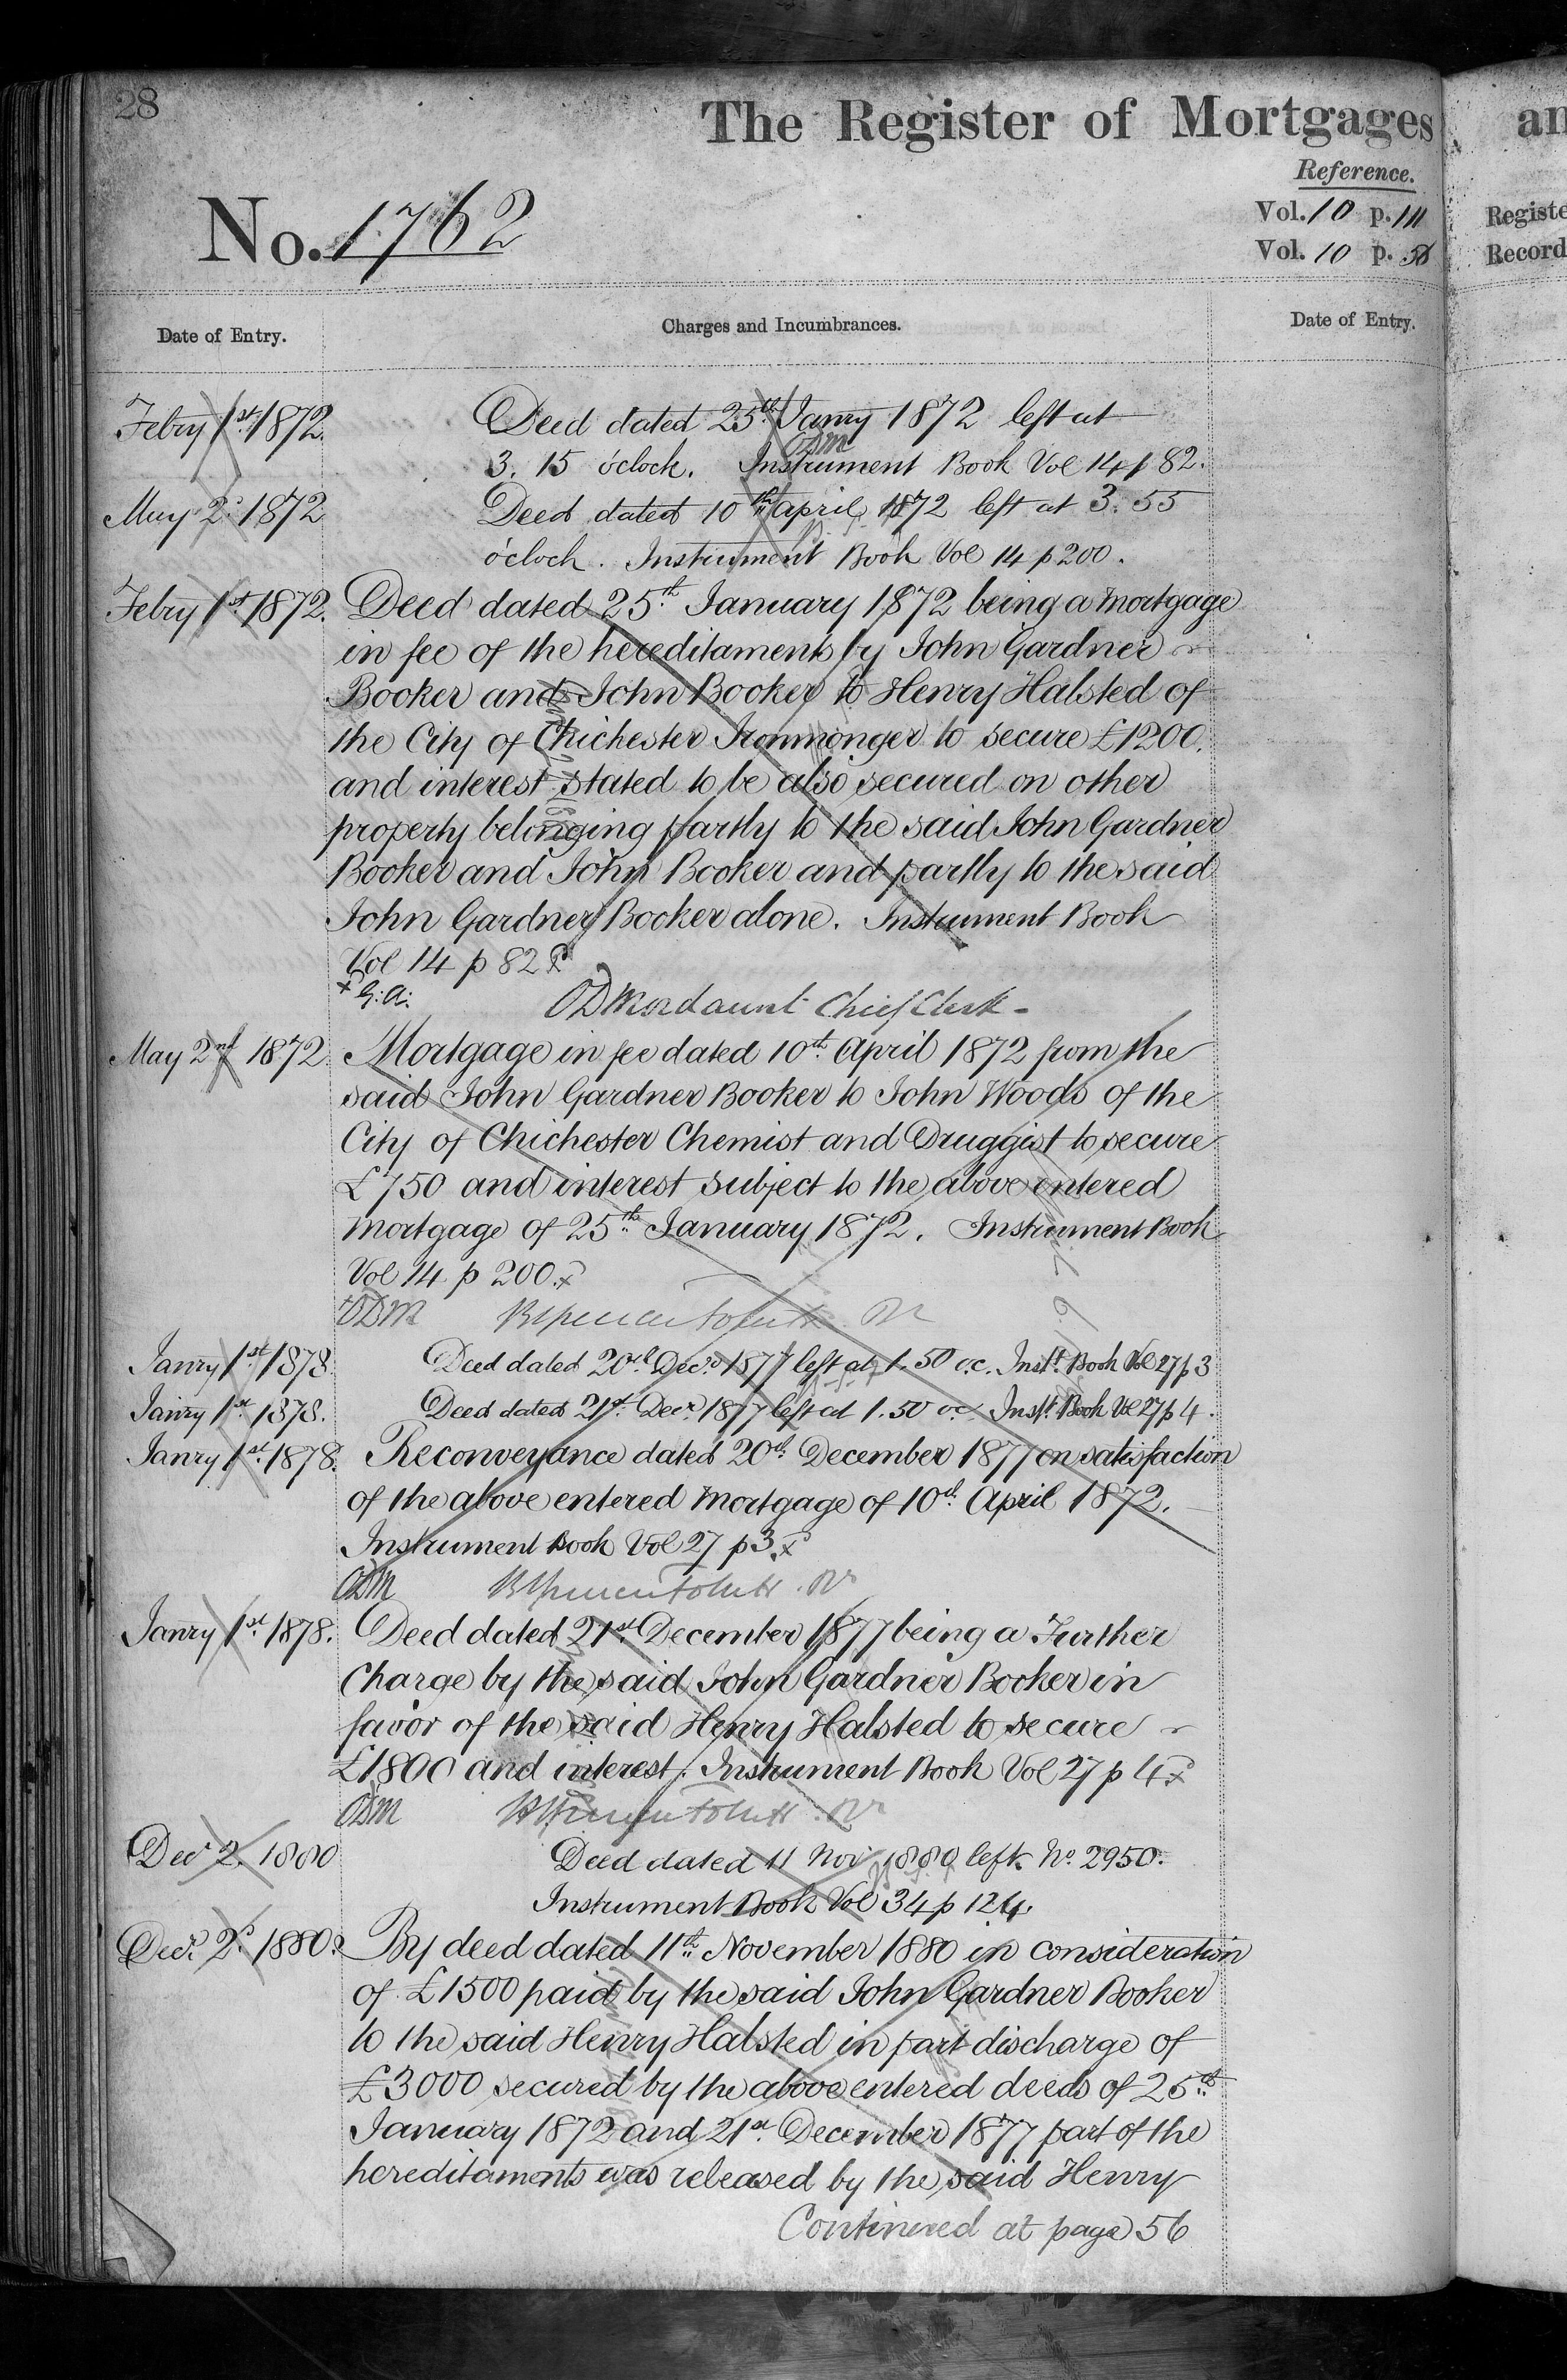 28
The Register of Mortgages
an
Reference.
No. 1762
Vol. 10 p. 111
Registe
Vol. 10 p. 56
Record
Date of Entry.
Charges and Incumbrances.
Date of Entry.
Febry 1st 1872.
Deed dated 25th Janry 1872 left at
ODM
3. 15 o'clock. Instrument Book Vol 14 p 82.
May 2d 1872
Deed dated 10th April 1872 left at 3. 55
o'clock. Instrument Book Vol 14 p 200.
Febry 1st 1872. Deed dated 25th January 1872 being a mortgage
in fee of the hereditaments by John Gardner
Booker and John Booker to Henry Halsted of
the City of Chichester Ironmonger to secure £1200.
and interest stated to be also secured on other
property belonging partly to the said John Gardner
Booker and John Booker and partly to the said
John Gardner Booker alone. Instrument Book
Vol 14 p 82 x
x G. A.
ODMordaunt Chief Clerk
May 2nd 1872. Mortgage in fee dated 10th April 1872 from the
said John Gardner Booker to John Woods of the
City of Chichester Chemist and Druggist to secure
£750 and interest subject to the above entered
mortgage of 25th January 1872. Instrument Book
Vol 14 p 200. x
x ODM
Janry 1st 1878. Deed dated 20th Decr 1877 left at 1.50 oc. Inst. Book Vol 27 p 3
Janry 1st 1878. Deed dated 21st Decr 1877 left at 1.50 oc. Inst. Book Vol 27 p 4.
Janry 1st 1878. Reconveyance dated 20th December 1877 on satisfaction
of the above entered mortgage of 10th April 1872.
Instrument Book Vol 27 p 3. x
ODM
Janry 1st 1878. Deed dated 21st December 1877 being a Further
Charge by the said John Gardner Booker in
favor of the said Henry Halsted to secure
£1800 and interest. Instrument Book Vol 27 p 4 x
ODM
Decr 2. 1880
Deed dated 11 Nov 1880 left. No. 2950.
Instrument Book Vol 34 p 124.
Decr 2d 1880. By deed dated 11th November 1880 in consideration
of £1500 paid by the said John Gardner Booker
to the said Henry Halsted in part discharge of
£3000 secured by the above entered deeds of 25th
January 1872 and 21st December 1877 part of the
hereditaments was released by the said Henry
Continued at page 56